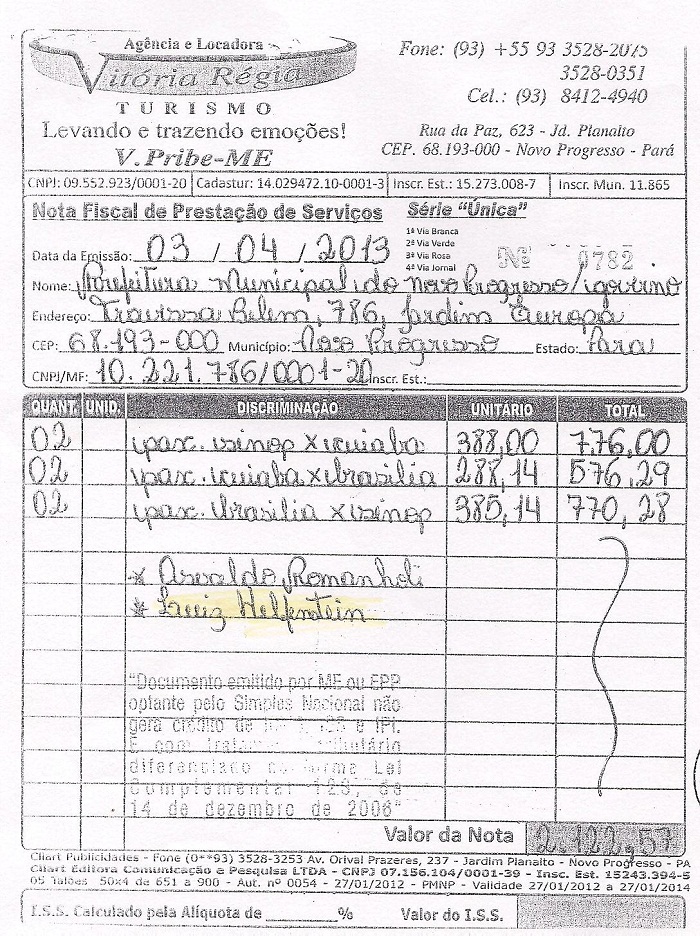 Agência e Locadora
Vitória Régia
TURISMO
Levando e trazendo emoções!
V. Pribe-ME
Fone: (93) +55 93 3528-2075
3528-0351
Cel.: (93) 8412-4940
Rua da Paz, 623 - Jd. Planalto
CEP. 68.193-000 - Novo Progresso - Pará
CNPJ: 09.552.923/0001-20 Cadastur: 14.029472.10-0001-3 Inscr. Est.: 15.273.008-7 Inscr. Mun. 11.865
Nota Fiscal de Prestação de Serviços Série "Única"
1ª Via Branca
2ª Via Verde
3ª Via Rosa
4ª Via Jornal
Nº 0782
Data da Emissão: 03 / 04 / 2013
Nome: Prefeitura Municipal de Novo Progresso / governo
Endereço: Travessa Belem, 786, Jardim Europa
CEP: 68.193-000 Município: Novo Progresso Estado: Para
CNPJ/MF: 10.221.786/0001-20 Inscr. Est.:
QUANT. UNID. DISCRIMINAÇÃO UNITÁRIO TOTAL
02 pax. sinop x cuiaba 388,00 776,00
02 pax. cuiaba x brasilia 288,14 576,29
02 pax. brasilia x sinop 385,14 770,28
* Osvaldo Romanholi
* Luiz Helfenstein
"Documento emitido por ME ou EPP
optante pelo Simples Nacional não
gera crédito de e IPI.
E com tratamento tributário
diferenciado conforme Lei
Complementar 123, de
14 de dezembro de 2006"
Valor da Nota 2.122,57
Cliart Publicidades - Fone (0**93) 3528-3253 Av. Orival Prazeres, 237 - Jardim Planalto - Novo Progresso - PA
Cliart Editora Comunicação e Pesquisa LTDA - CNPJ 07.156.104/0001-39 - Insc. Est. 15243.394-5
05 Talões 50x4 de 651 a 900 - Aut. nº 0054 - 27/01/2012 - PMNP - Validade 27/01/2012 a 27/01/2014
I.S.S. Calculado pela Alíquota de ______% Valor do I.S.S.